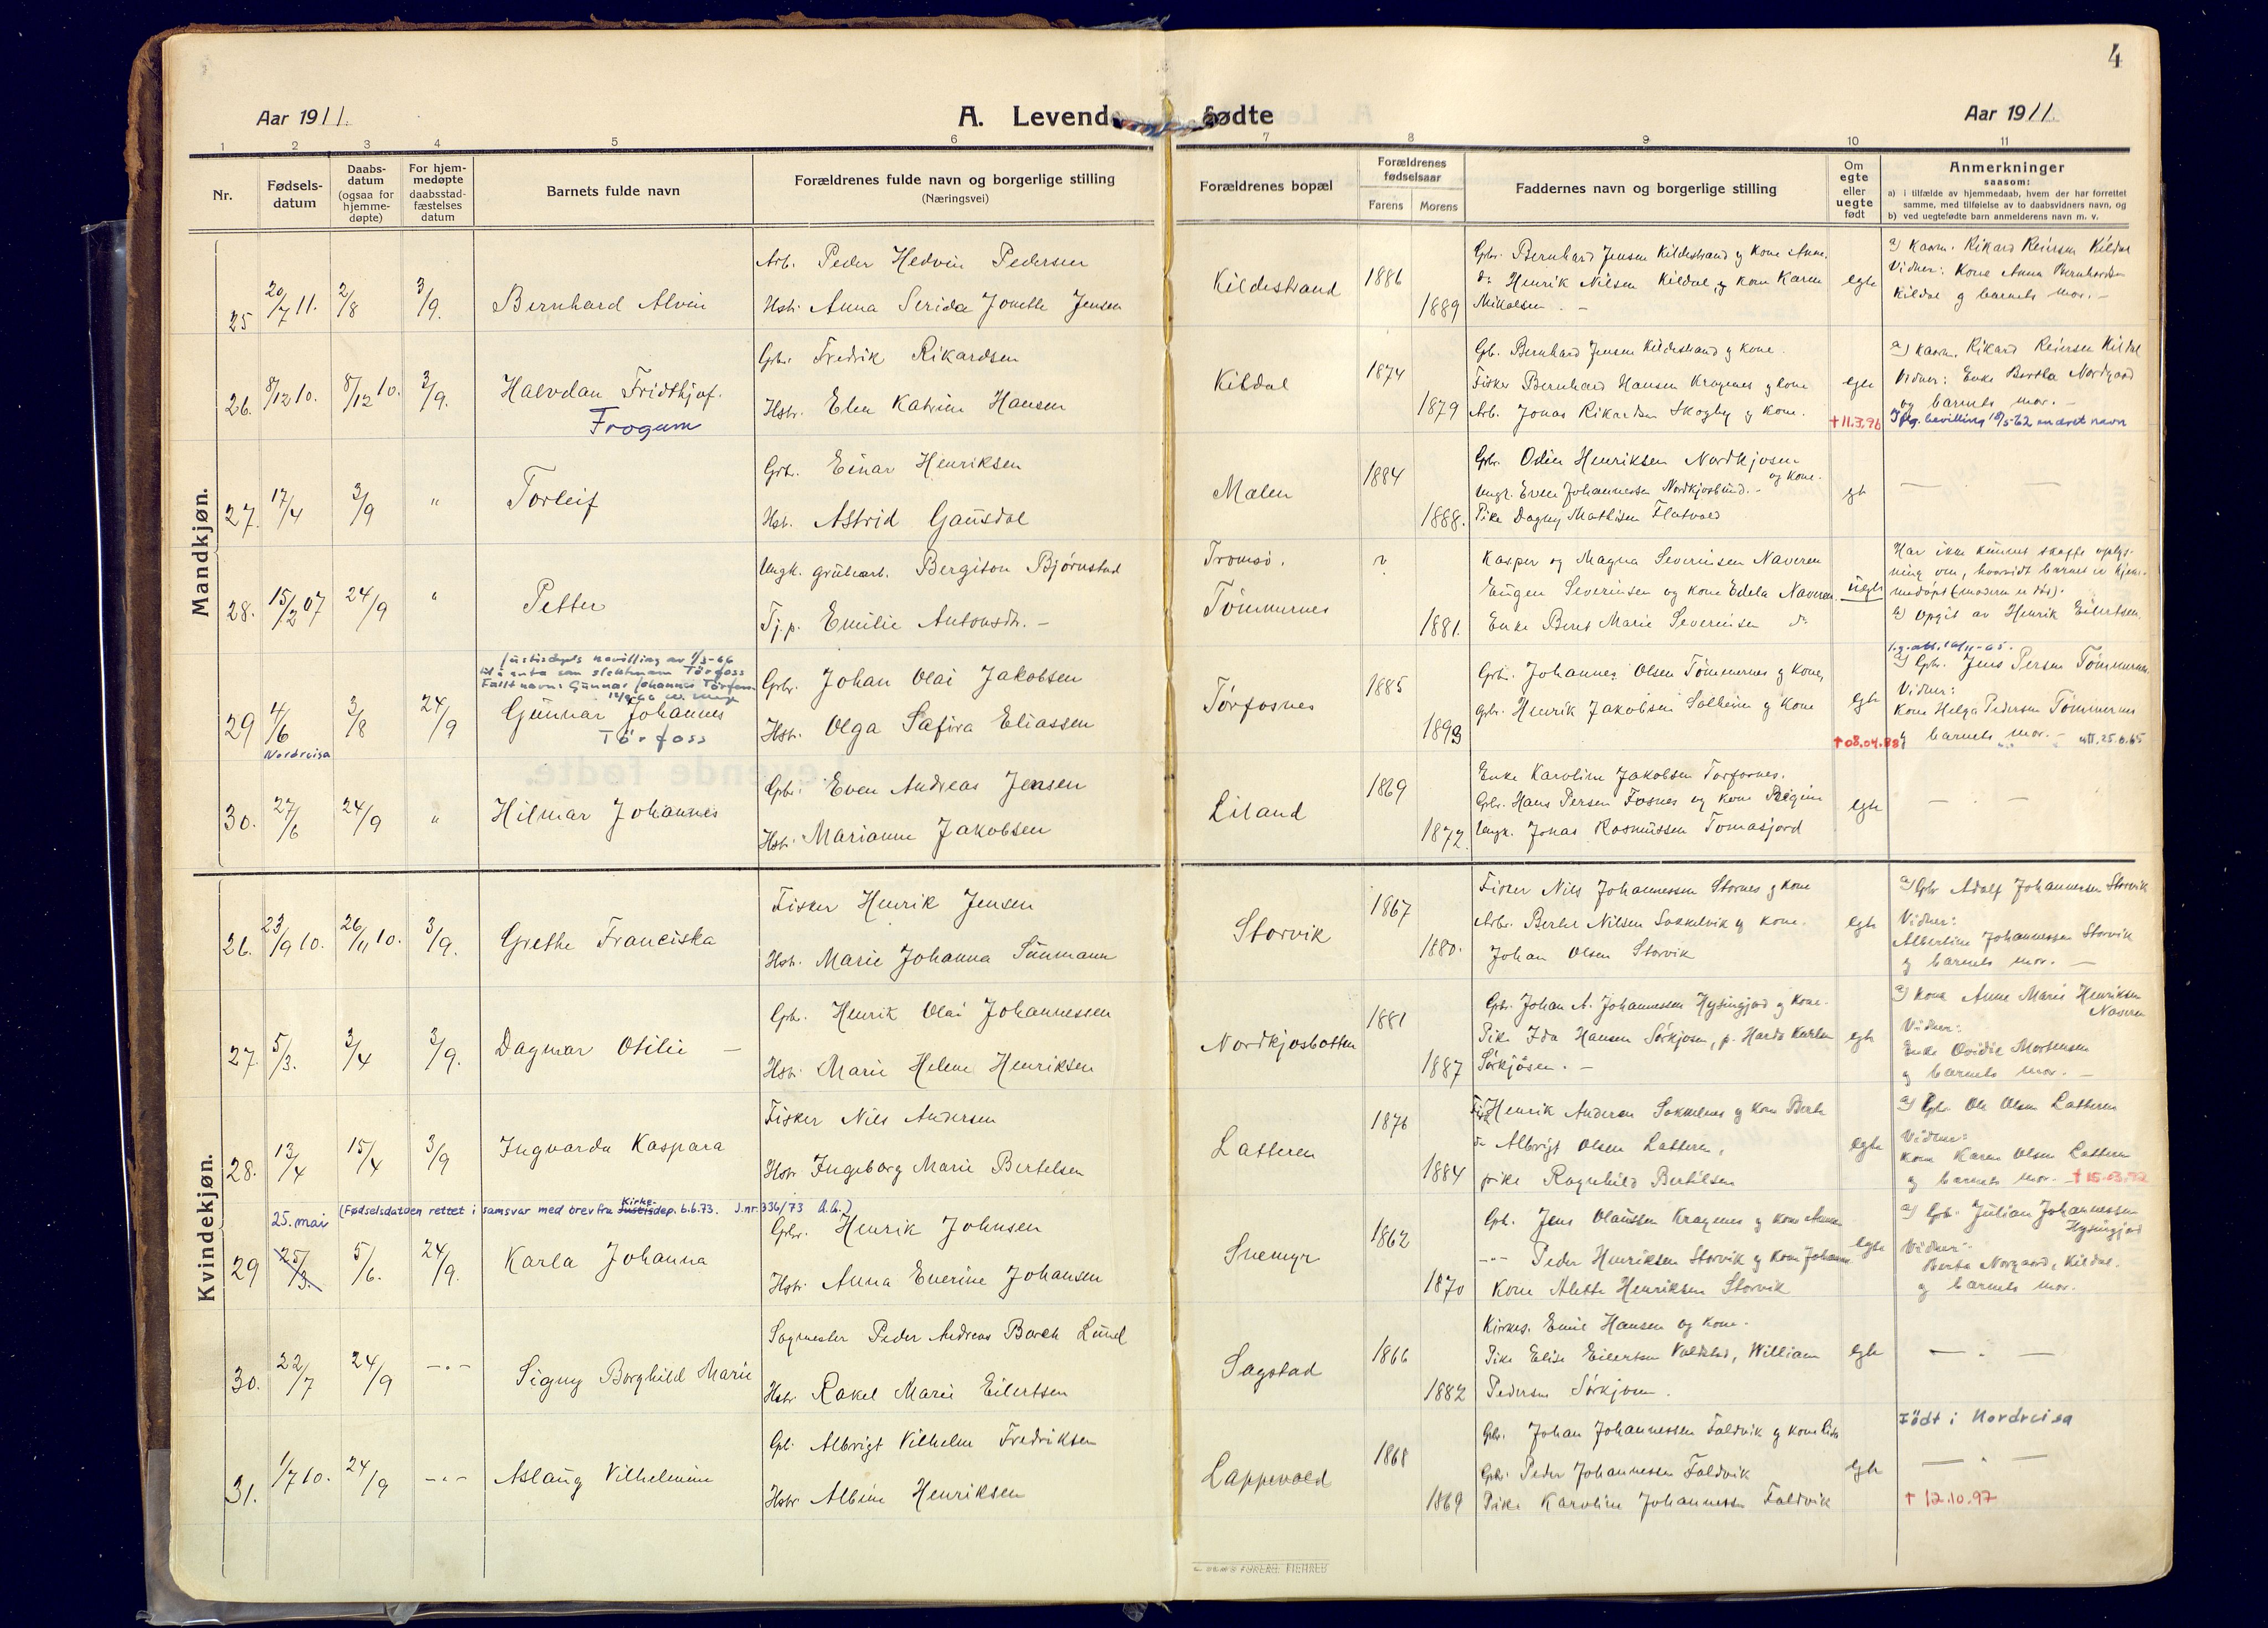 4
Aar 1911.
A. Levende fødte
Aar 1911.
1 2 3 4 5 6 7 8 9 10 11
Nr.
Fødsels-
datum
Daabs-
datum
(ogsaa for
hjemme-
døpte)
For hjem-
medøpte
daabsstad-
fæstelses
datum
Barnets fulde navn
Forældrenes fulde navn og borgerlige stilling
(Næringsvei)
Forældrenes bopæl
Forældrenes
fødselsaar
Farens Morens
Faddernes navn og borgerlige stilling
Om
egte
eller
uegte
født
Anmerkninger
saasom:
a) i tilfælde av hjemmedaab, hvem der har forrettet
samme, med tilføielse av to daabsvidners navn, og
b) ved uegtefødte barn anmelderens navn m. v.
Mandkjøn.
25 20/7 11. 2/8 3/9. Bernhard Alvin
Arb. Peder Hedvin Pedersen
Hstr. Anna Serida Jonette Jensen
Kildestrand 1886 1889
Gbr. Bernhard Jensen Kildestrand og kone Anne.
do Henrik Nilsen Kildal, og kone Karen
Mikalsen. -
egte
a) Kaarm. Rikard Reiersen Kildal
Vidner: Kone Anna Bernhardsen
Kildal og barnets mor. -
26. 8/12 10. 8/12 10. 3/9. Halvdan Fridthjof.
Frogum
Gbr. Fredrik Rikardsen
Hstr. Elen Katrine Hansen
Kildal 1874 1879
Gb. Bernhard Jensen Kildestrand og kone.
Fisker Bernhard Hansen Kragenes og kone
Arb. Jonas Rikardsen Skogby og kone.
egte
†11.3.96
a) Kaarm. Rikard Reiersen Kildal
Vidner: Enke Bertha Nordgaard
og barnets mor. -
Iflg. bevilling 18/5-62 endret navn
27. 17/4 3/9 " Torleif
Gbr. Einar Henriksen
Hst. Astrid Gausdal
Malen 1884 1888.
Gbr. Odin Henriksen Nordkjosen
og kone.
Ungk. Even Johannessen Nordkjosbund. -
Pike Dagny Mathisen Flatvold
egte
28. 15/2 07 24/9 " Petter
Ungk. grubearb. Bergiton Bjørnstad
Tj.p. Emilie Antonsdtr. -
Tromsø.
Tømmernes
? 1881.
Kasper og Magna Severinsen Naveren
Eugen Severinsen og kone Edela Naveren
Enke Beret Marie Severinsen do
uegte
Har ikke kunnet skaffe oplys-
ning om, hvorvidt barnet er hjem-
medøpt (moderen er død).
b) Opgit av Henrik Eilertsen.
Justisdeps bevilling av 1/3-66
til å anta som slektsnavn Törfoss
Fullt navn: Gunnar Johannes Törfoss
29 4/6 3/8 24/9 Gunnar Johannes
Törfoss
Nordreisa
Gbr. Johan Olai Jakobsen
Hst. Olga Safira Eliassen
Tørfosnes 1885 1893
Gbr. Johannes Olsen Tømmernes og kone,
Gbr. Henrik Jakobsen Solheim og kone
egte
†08.04.88
a) Gbr. Jens Persen Tømmernes.
Vidner:
Kone Helga Pedersen Tømmernes
og barnets mor. - att. 25.6.65
30. 27/6 24/9 " Hilmar Johannes
Gbr. Even Andreas Jensen
Hstr. Marianne Jakobsen
Liland 1869 1872.
Enke Karoline Jakobsen Torfosnes.
Gbr. Hans Persen Fosnes og kone Regine
Ungk. Jonas Rasmussen Tomasjord
egte
Kvindekjøn.
26. 23/9 10. 26/11 10. 3/9. Grethe Franciska
Fisker Henrik Jensen
Hst. Marie Johanna Sunmann
Storvik 1867 1880.
Fisker Nils Johannessen Stornes og kone
Arbr. Bertel Nilsen Sokkelvik og kone.
Johan Olsen Storvik
egte
a) Gbr Adolf Johannessen Storvik
Vidner:
Albertine Johannessen Storvik
og barnets mor. -
27. 5/3. 3/4 3/9. Dagmar Otilie -
Gbr. Henrik Olai Johannessen
Hst. Marie Helene Henriksen
Nordkjosbotten 1881 1887
Gbr. Johan A. Johannessen Hysingjord og kone.
Pike Ida Hansen Sørkjosen, p. Harda Karlsen
Sørkjosen. -
egte
a) Kone Anne Marie Henriksen
Naveren
Vidner:
Enke Ovidie Mortensen
og barnets mor. -
28. 13/4 15/4 3/9 Ingvarda Kaspara
Fisker Nils Andersen
Hstr. Ingeborg Marie Bertelsen
Latteren 1876 1884
Fisk. Henrik Andersen Sokkelnes og kone Berte
do Albrigt Olsen Latteren,
pike Ragnhild Bertilsen
egte
a) Gbr. Ole Olsen Latteren
Vidner:
Kone Karen Olsen Latteren
og barnets mor. †15.03.92
25. mai (Fødselsdatoen rettet i samsvar med brev fra Kirke- Justisdep. 6.6.73. J.nr. 336/73 A.G.)
29 25/3. 5/6. 24/9. Karla Johanna
Gbr. Henrik Johnsen
Hstr. Anna Enerine Johansen
Snemyr 1862 1870
Gbr. Jens Olaussen Kragenes og kone Anna
-"- Peder Henriksen Storvik og kone Johanna
Kone Alette Henriksen Storvik
egte
a) Gbr. Julian Johannessen
Hysingjord
Vidner:
Berta Norgaard, Kildal.
og barnets mor.
30. 22/7 24/9 -"- Signy Borghild Marie
Sagmester Peder Andreas Barch Lund
Hstr. Rakel Marie Eilertsen
Sagstad 1866 1882
Kirkes. Emil Hansen og kone.
Pike Elise Eilertsen Voldstad, William
Pedersen Sørkjosen.
egte
31. 1/7 10. 24/9 -"- Aslaug Vilhelmine
Gbr. Albrigt Vilhelm Fredriksen
Hstr Albine Henriksen
Lappevold 1868 1869
Gbr. Johan Johannessen Foldvik og kone Lise
Gbr. Peder Johannessen Foldvik
Pike Karoline Johannessen Foldvik
egte
Født i Nordreisa
† 12.10.97